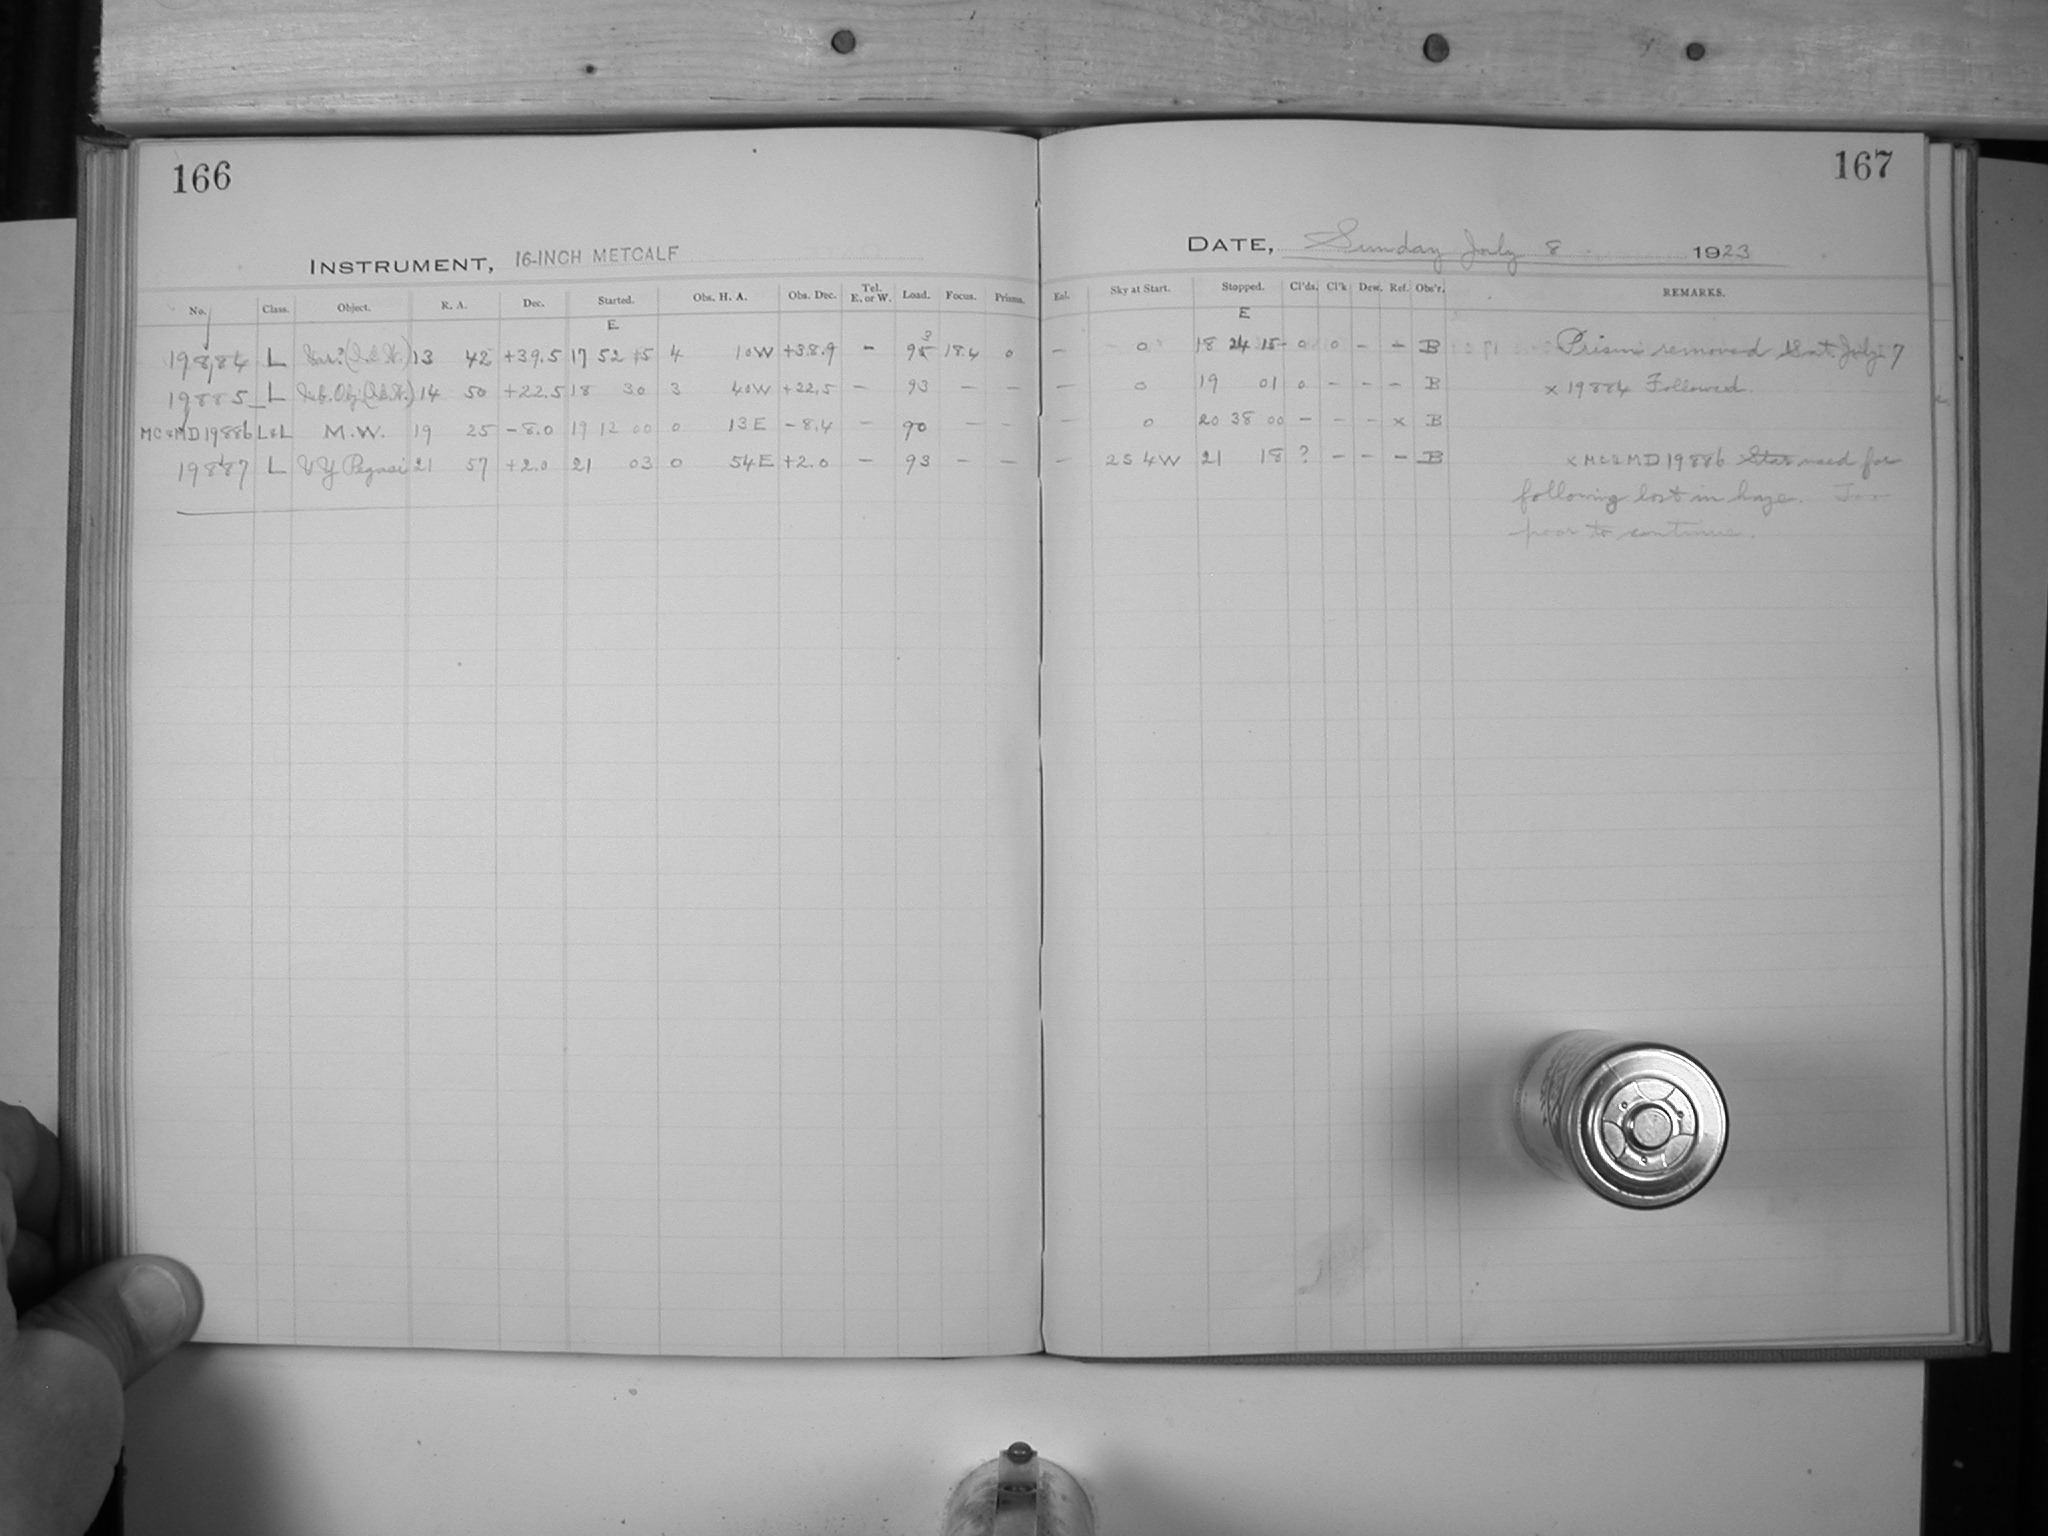 166
167
INSTRUMENT, 16-INCH METCALF
DATE, Sunday July 8 1923
No. Class. Object. R. A. Dec. Started. Obs. H. A. Obs. Dec. Tel. E. or W. Load. Focus. Prisms. Eal. Sky at Start. Stopped. Cl'ds. Cl'k Dew. Ref. Obs'r. REMARKS.
E E
19884 L 13 42 +39.5 17 52 15 4 10W +38.9 – 93 18.4 0 – 0 18 24 15 0 0 – – B Prism removed Sat. July 7
19885 L 14 50 +22.5 18 30 3 40W +22.5 – 93 – – – 0 19 01 0 – – – B x 19884 Followed.
MC&MD19886 L&L M.W. 19 25 –8.0 19 12 00 0 13E –8.4 – 90 – – – 0 20 38 00 – – – x B
19887 L VY Pegasi 21 57 +2.0 21 03 0 54E +2.0 – 93 – – – 2S4W 21 18 ? – – – B x MC&MD19886 Star used for
following lost in haze. Too
poor to continue.